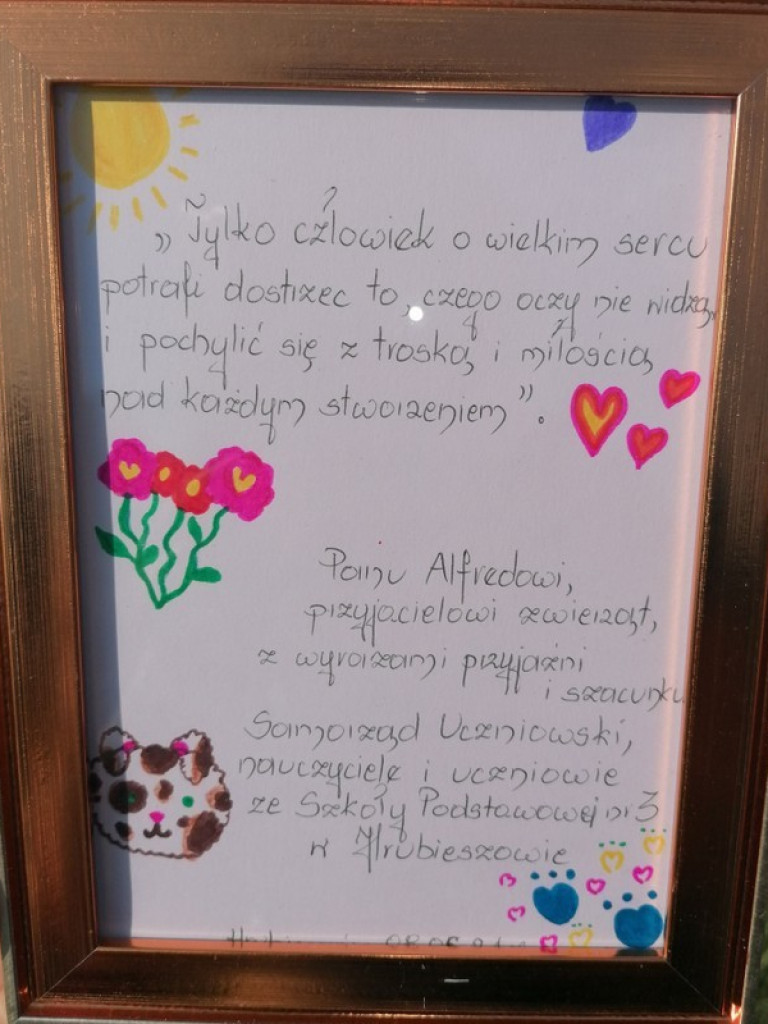 „Tylko człowiek o wielkim sercu
potrafi dostrzec to, czego oczy nie widzą,
i pochylić się z troską i miłością
nad każdym stworzeniem”.
Panu Alfredowi,
przyjacielowi zwierząt,
z wyrazami przyjaźni
i szacunku
Samorząd Uczniowski,
nauczyciele i uczniowie
ze Szkoły Podstawowej nr 3
w Hrubieszowie